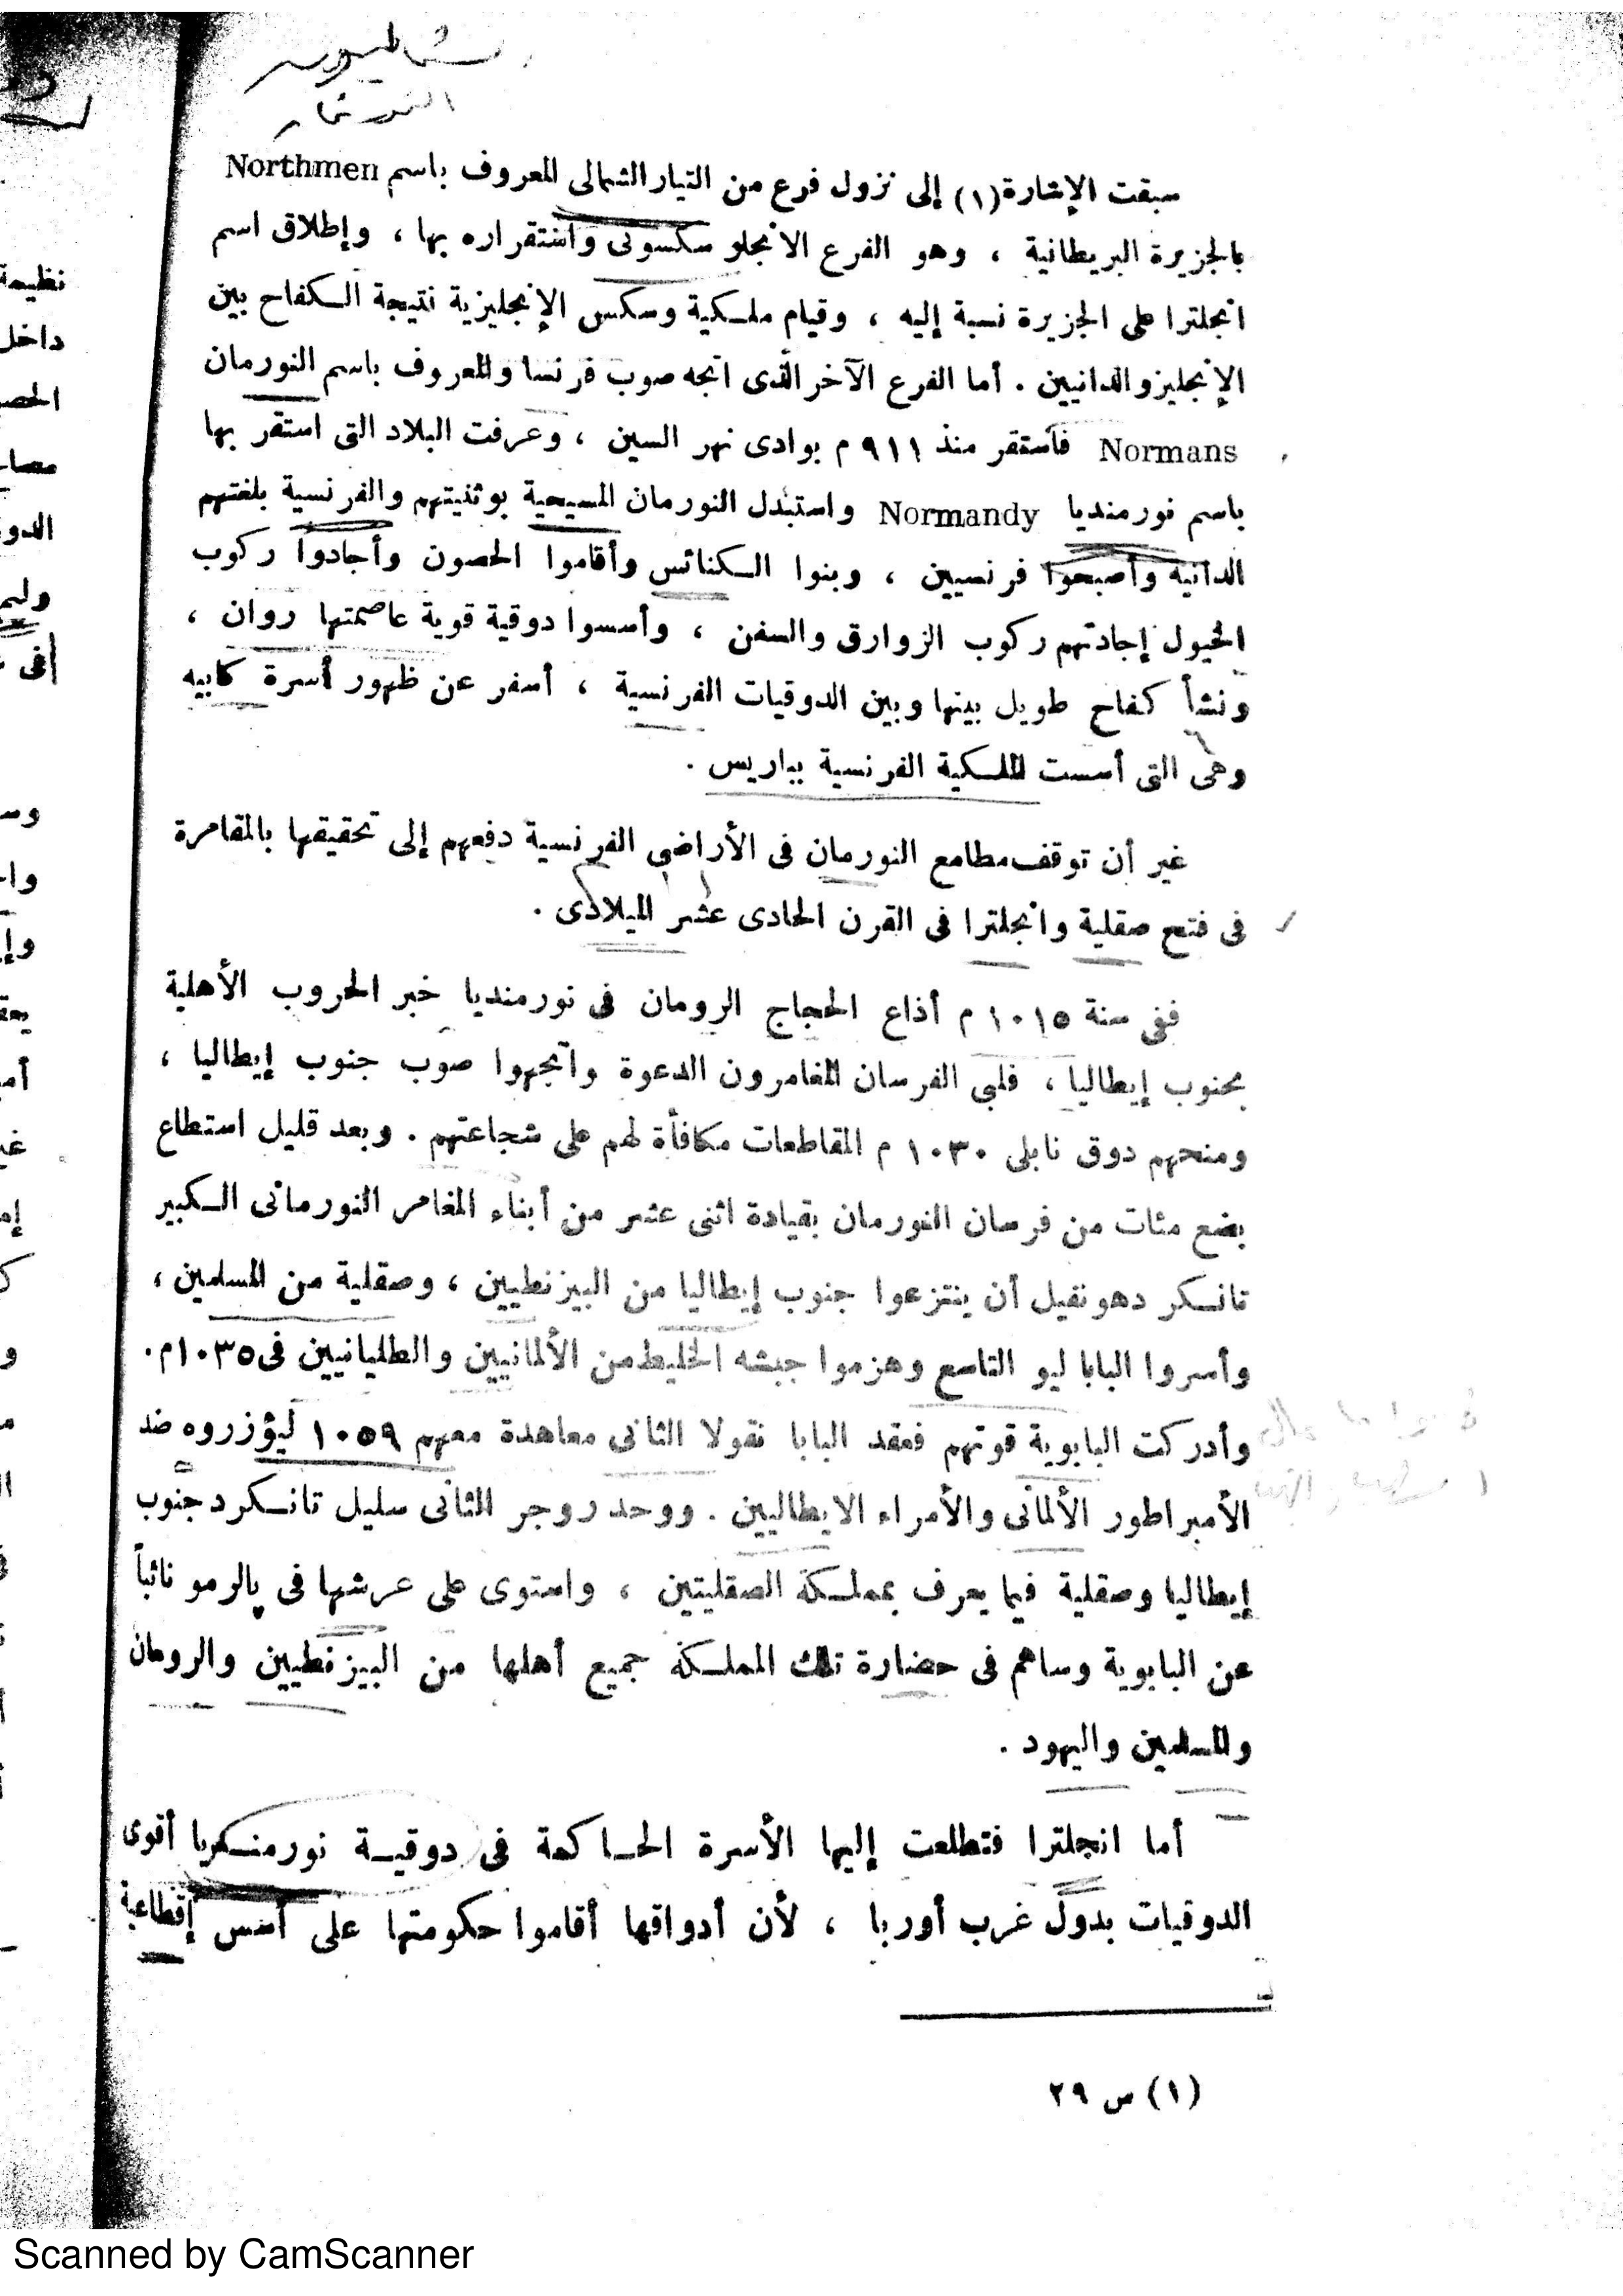 النورمان
سبقت الإشارة(١) إلى نزول فرع من التيار الشمالى المعروف باسم Northmen
بالجزيرة البريطانية ، وهو الفرع الانجلو سكسونى واستقراره بها ، وإطلاق اسم
انجلترا على الجزيرة نسبة إليه ، وقيام ملكية وسكس الإنجليزية نتيجة الكفاح بين
الإنجليز والدانيين . أما الفرع الآخر الذى اتجه صوب فرنسا والمعروف باسم النورمان
Normans فاستقر منذ ٩١١ م بوادى نهر السين ، وعرفت البلاد التى استقر بها
باسم نورمنديا Normandy واستبدل النورمان المسيحية بوثنيتهم والفرنسية بلغتهم
الدانية وأصبحوا فرنسيين ، وبنوا الكنائس وأقاموا الحصون وأجادوا ركوب
الخيول إجادتهم ركوب الزوارق والسفن ، وأسسوا دوقية قوية عاصمتها روان ،
ونشأ كفاح طويل بينها وبين الدوقيات الفرنسية ، أسفر عن ظهور أسرة كابيه
وهى التى أسست الملكية الفرنسية بباريس .
غير أن توقف مطامع النورمان فى الأراضى الفرنسية دفعهم إلى تحقيقها بالمقامرة
فى فتح صقلية وانجلترا فى القرن الحادى عشر الميلادى .
ففى سنة ١٠١٥ م أذاع الحجاج الرومان فى نورمنديا خبر الحروب الأهلية
بجنوب إيطاليا ، فلبى الفرسان المغامرون الدعوة واتجهوا صوب جنوب إيطاليا ،
ومنحهم دوق نابلى ١٠٣٠ م المقاطعات مكافأة لهم على شجاعتهم . وبعد قليل استطاع
بضع مئات من فرسان النورمان بقيادة اثنى عشر من أبناء المغامر النورمانى الكبير
تانكر دهونفيل أن ينتزعوا جنوب إيطاليا من البيزنطيين ، وصقلية من المسلمين ،
وأسروا البابا ليو التاسع وهزموا جيشه الخليط من الألمانيين والطليانيين فى ١٠٣٥م.
وأدركت البابوية قوتهم فعقد البابا نقولا الثانى معاهدة معهم ١٠٥٩ ليؤزروه ضد
الأمبراطور الألمانى والأمراء الايطاليين . ووحد روجر الثانى سليل تانكرد جنوب
إيطاليا وصقلية فيما يعرف بمملكة الصقليتين ، واستوى على عرشها فى پالرمو نائباً
عن البابوية وساهم فى حضارة تلك المملكة جميع أهلها من البيزنطيين والرومان
والمسلمين واليهود .
أما انجلترا فتطلعت إليها الأسرة الحاكمة فى دوقية نورمنديا أقوى
الدوقيات بدول غرب أوربا ، لأن أدواقها أقاموا حكومتها على أسس إقطاعية
(١) س ٢٩
Scanned by CamScanner